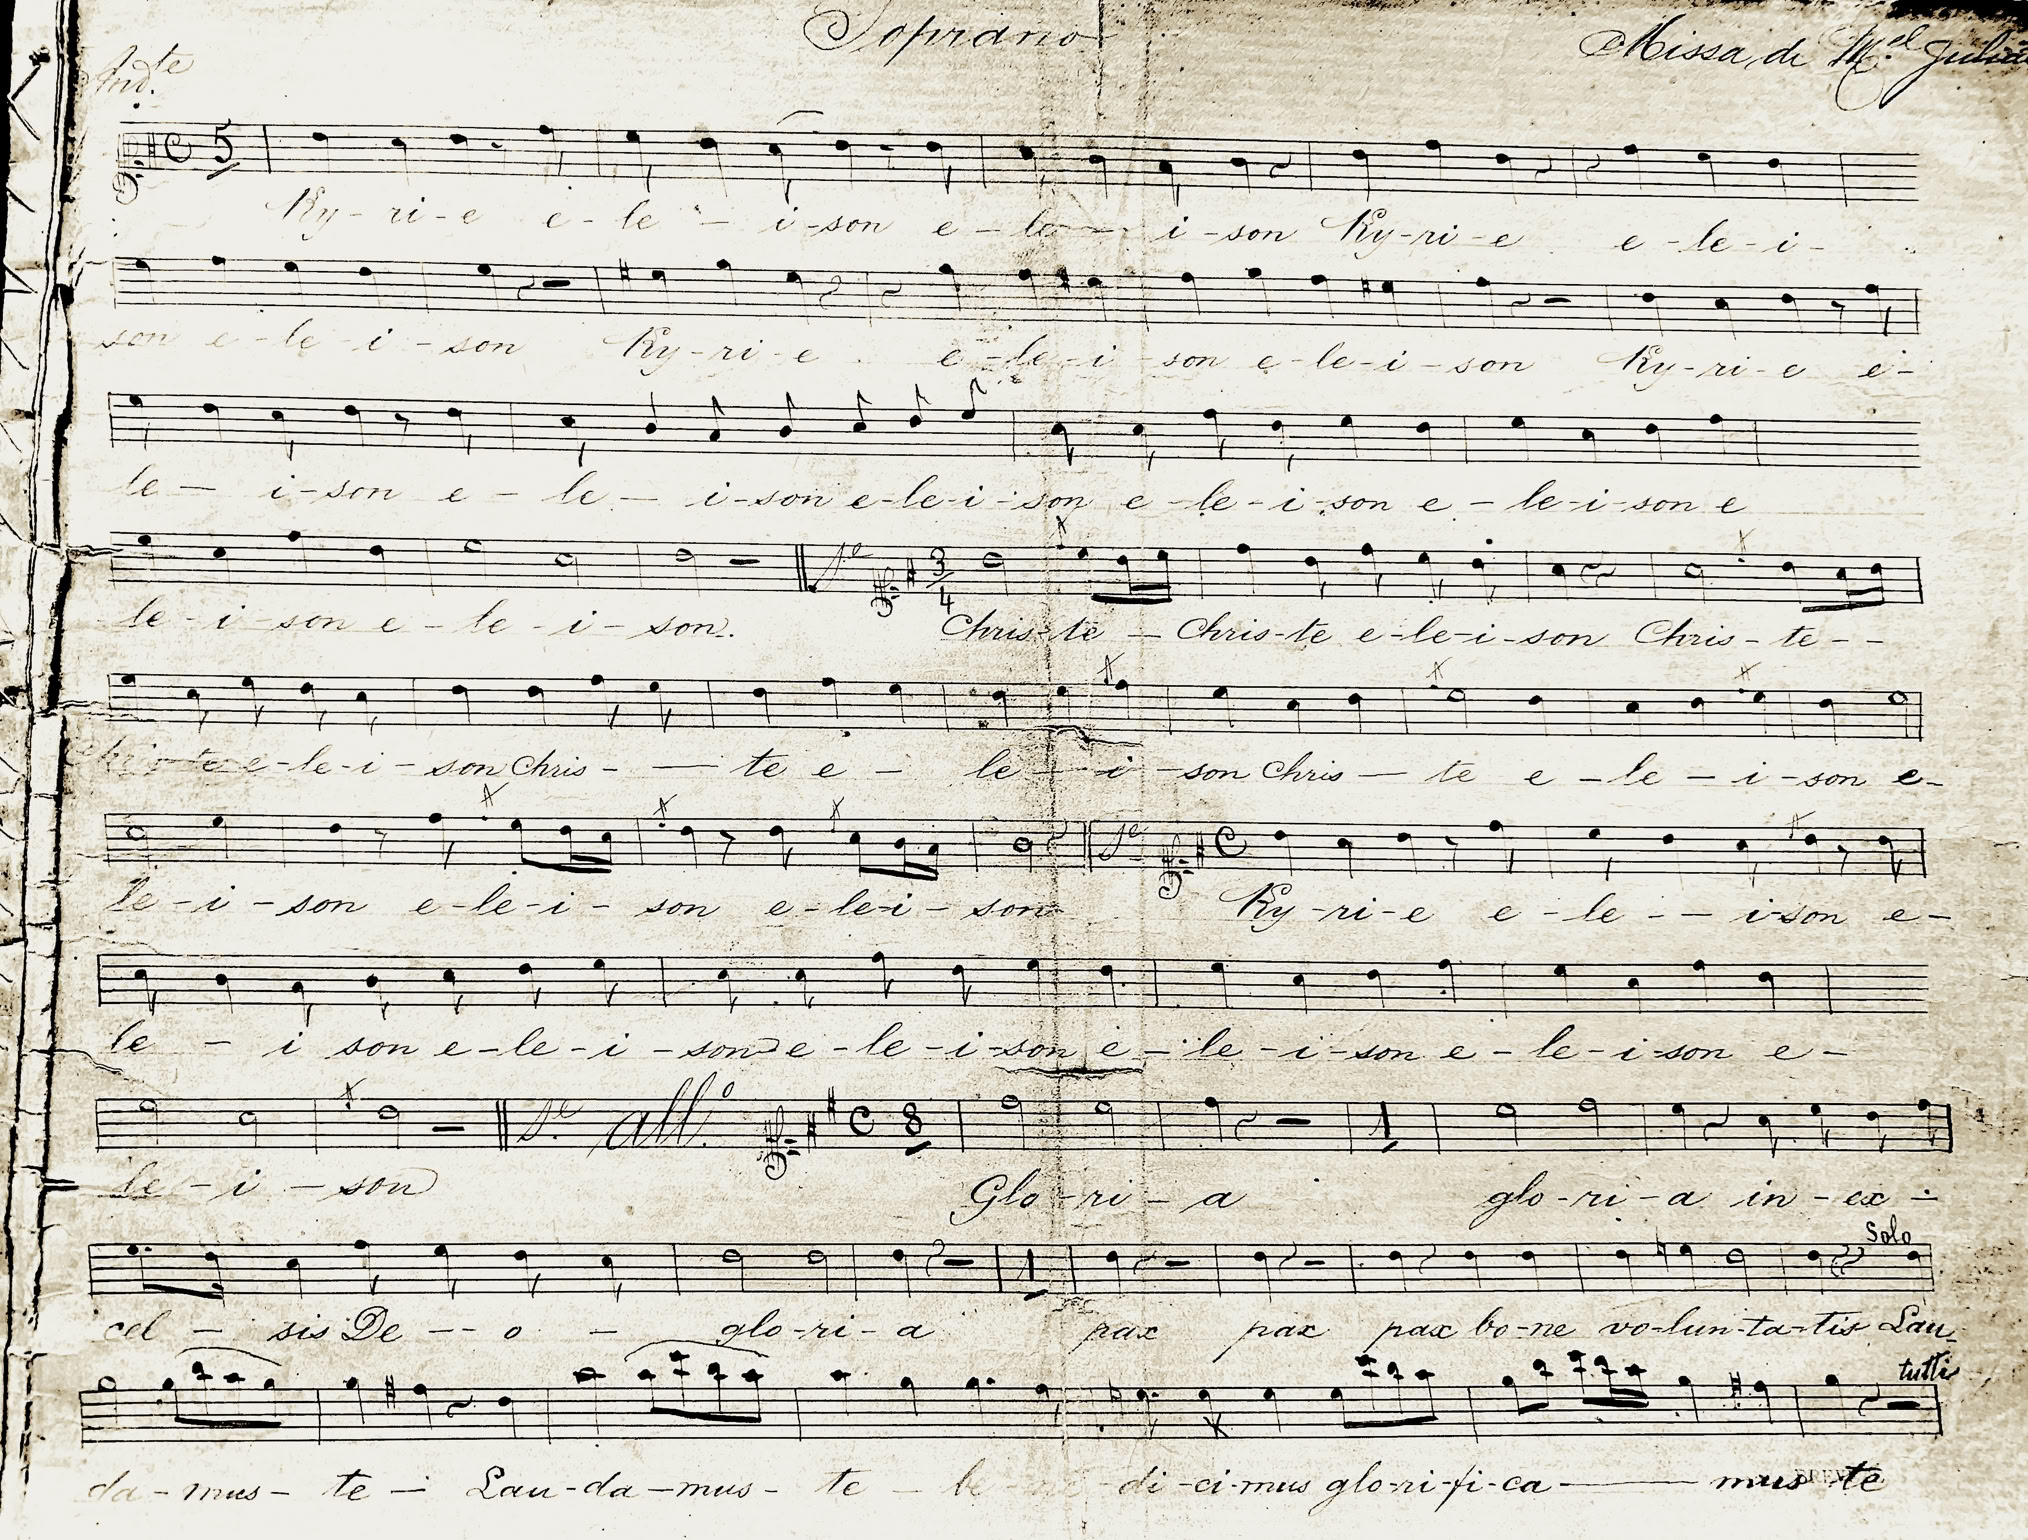 Soprano
Missa de M.el Julião
And.te
C 5
Ky-ri-e e-le-i-son e-le-i-son Ky-ri-e e-le-i-
son e-le-i-son Ky-ri-e e-le-i-son e-le-i-son Ky-ri-e e-
le-i-son e-le-i-son e-le-i-son e-le-i-son e-le-i-son e
3/4
le-i-son e-le-i-son. Chris-te-Chris-te e-le-i-son Chris-te--
Chris-te e-le-i-son Chris-te e-le-i-son Chris-te e-le-i-son e-
C
le-i-son e-le-i-son e-le-i-son Ky-ri-e e-le--i-son e-
le-i son e-le-i-son e-le-i-son e-le-i-son e-le-i-son e-
all.o C 8
le-i-son Glo-ri-a glo-ri-a in-ex-
Solo
cel-sis De--o-glo-ri-a pax pax pax bo-ne vo-lun-ta-tis Lau-
tutti
da-mus-te-Lau-da-mus-te-be-ne-di-ci-mus glo-ri-fi-ca-mus te